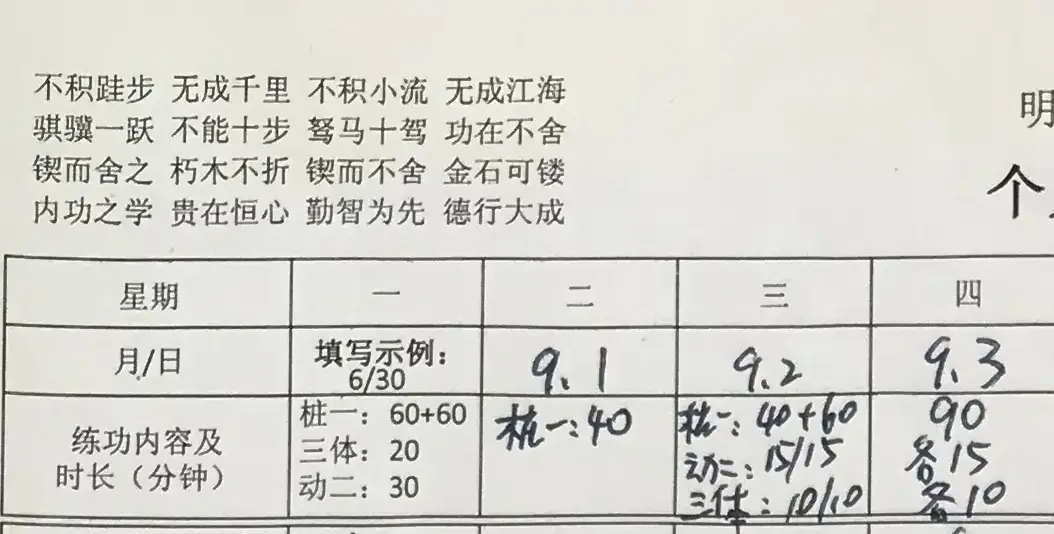 不积跬步 无成千里 不积小流 无成江海
骐骥一跃 不能十步 驽马十驾 功在不舍
锲而舍之 朽木不折 锲而不舍 金石可镂
内功之学 贵在恒心 勤智为先 德行大成
明
个
星期 一 二 三 四
月/日 填写示例: 6/30 9.1 9.2 9.3
练功内容及
时长（分钟）
桩一：60+60
三体：20
动二：30
桩一:40
桩一:40+60
动二:15/15
三体:10/10
90
各15
各10